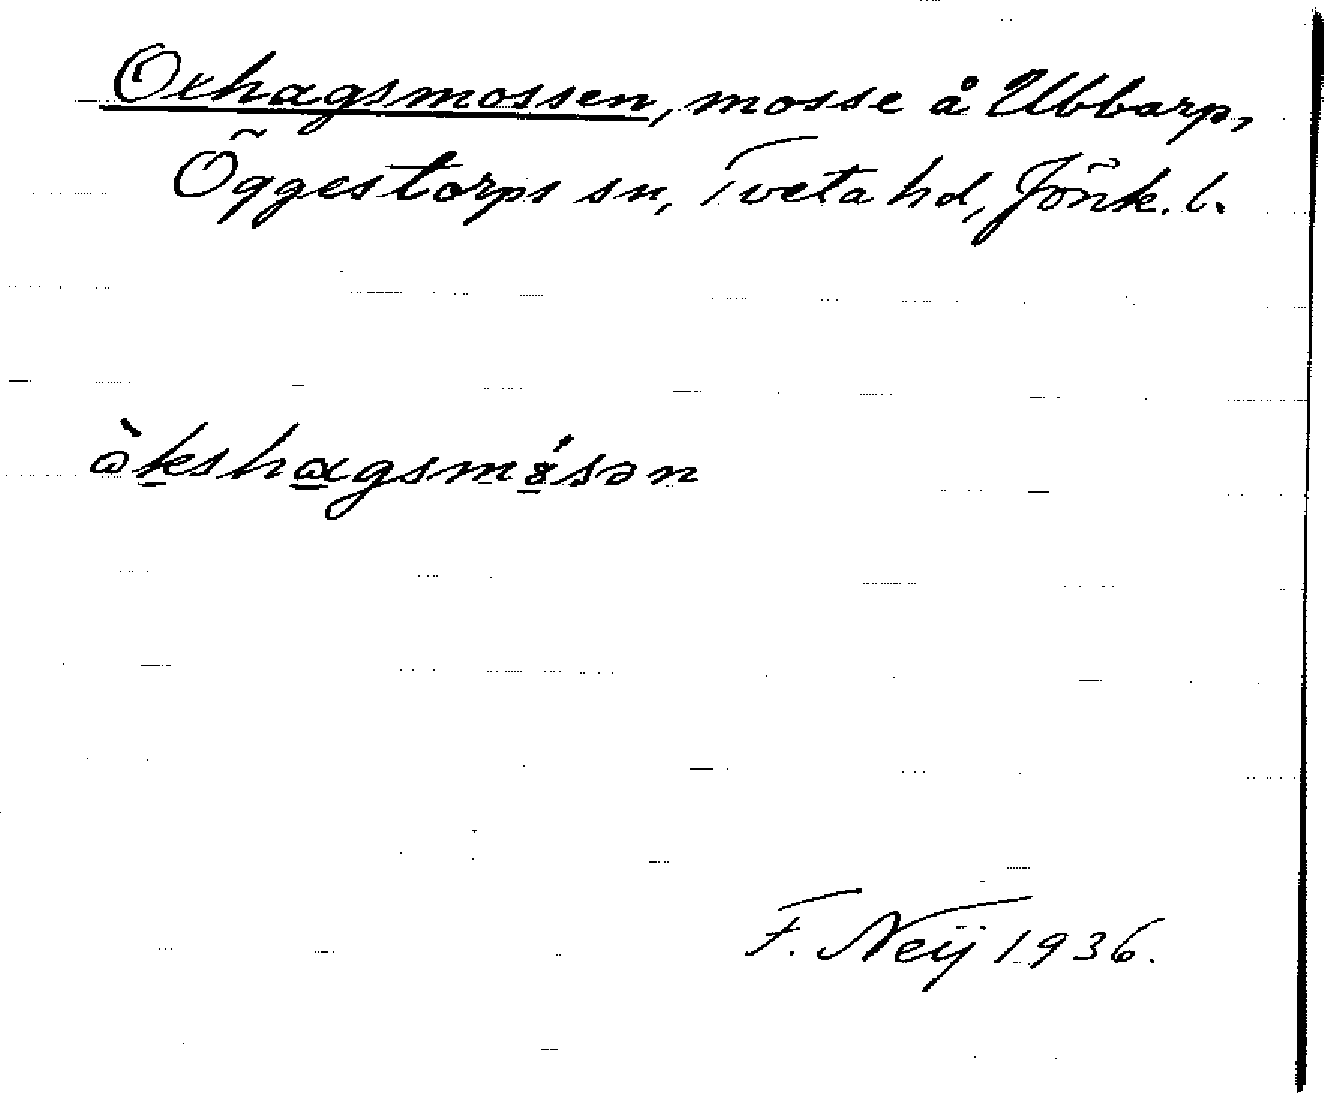 Oxhagsmossen, mosse å Ubbarp,
Öggestorps sn, Tveta hd, Jönk. l.
F. Neij 1936.